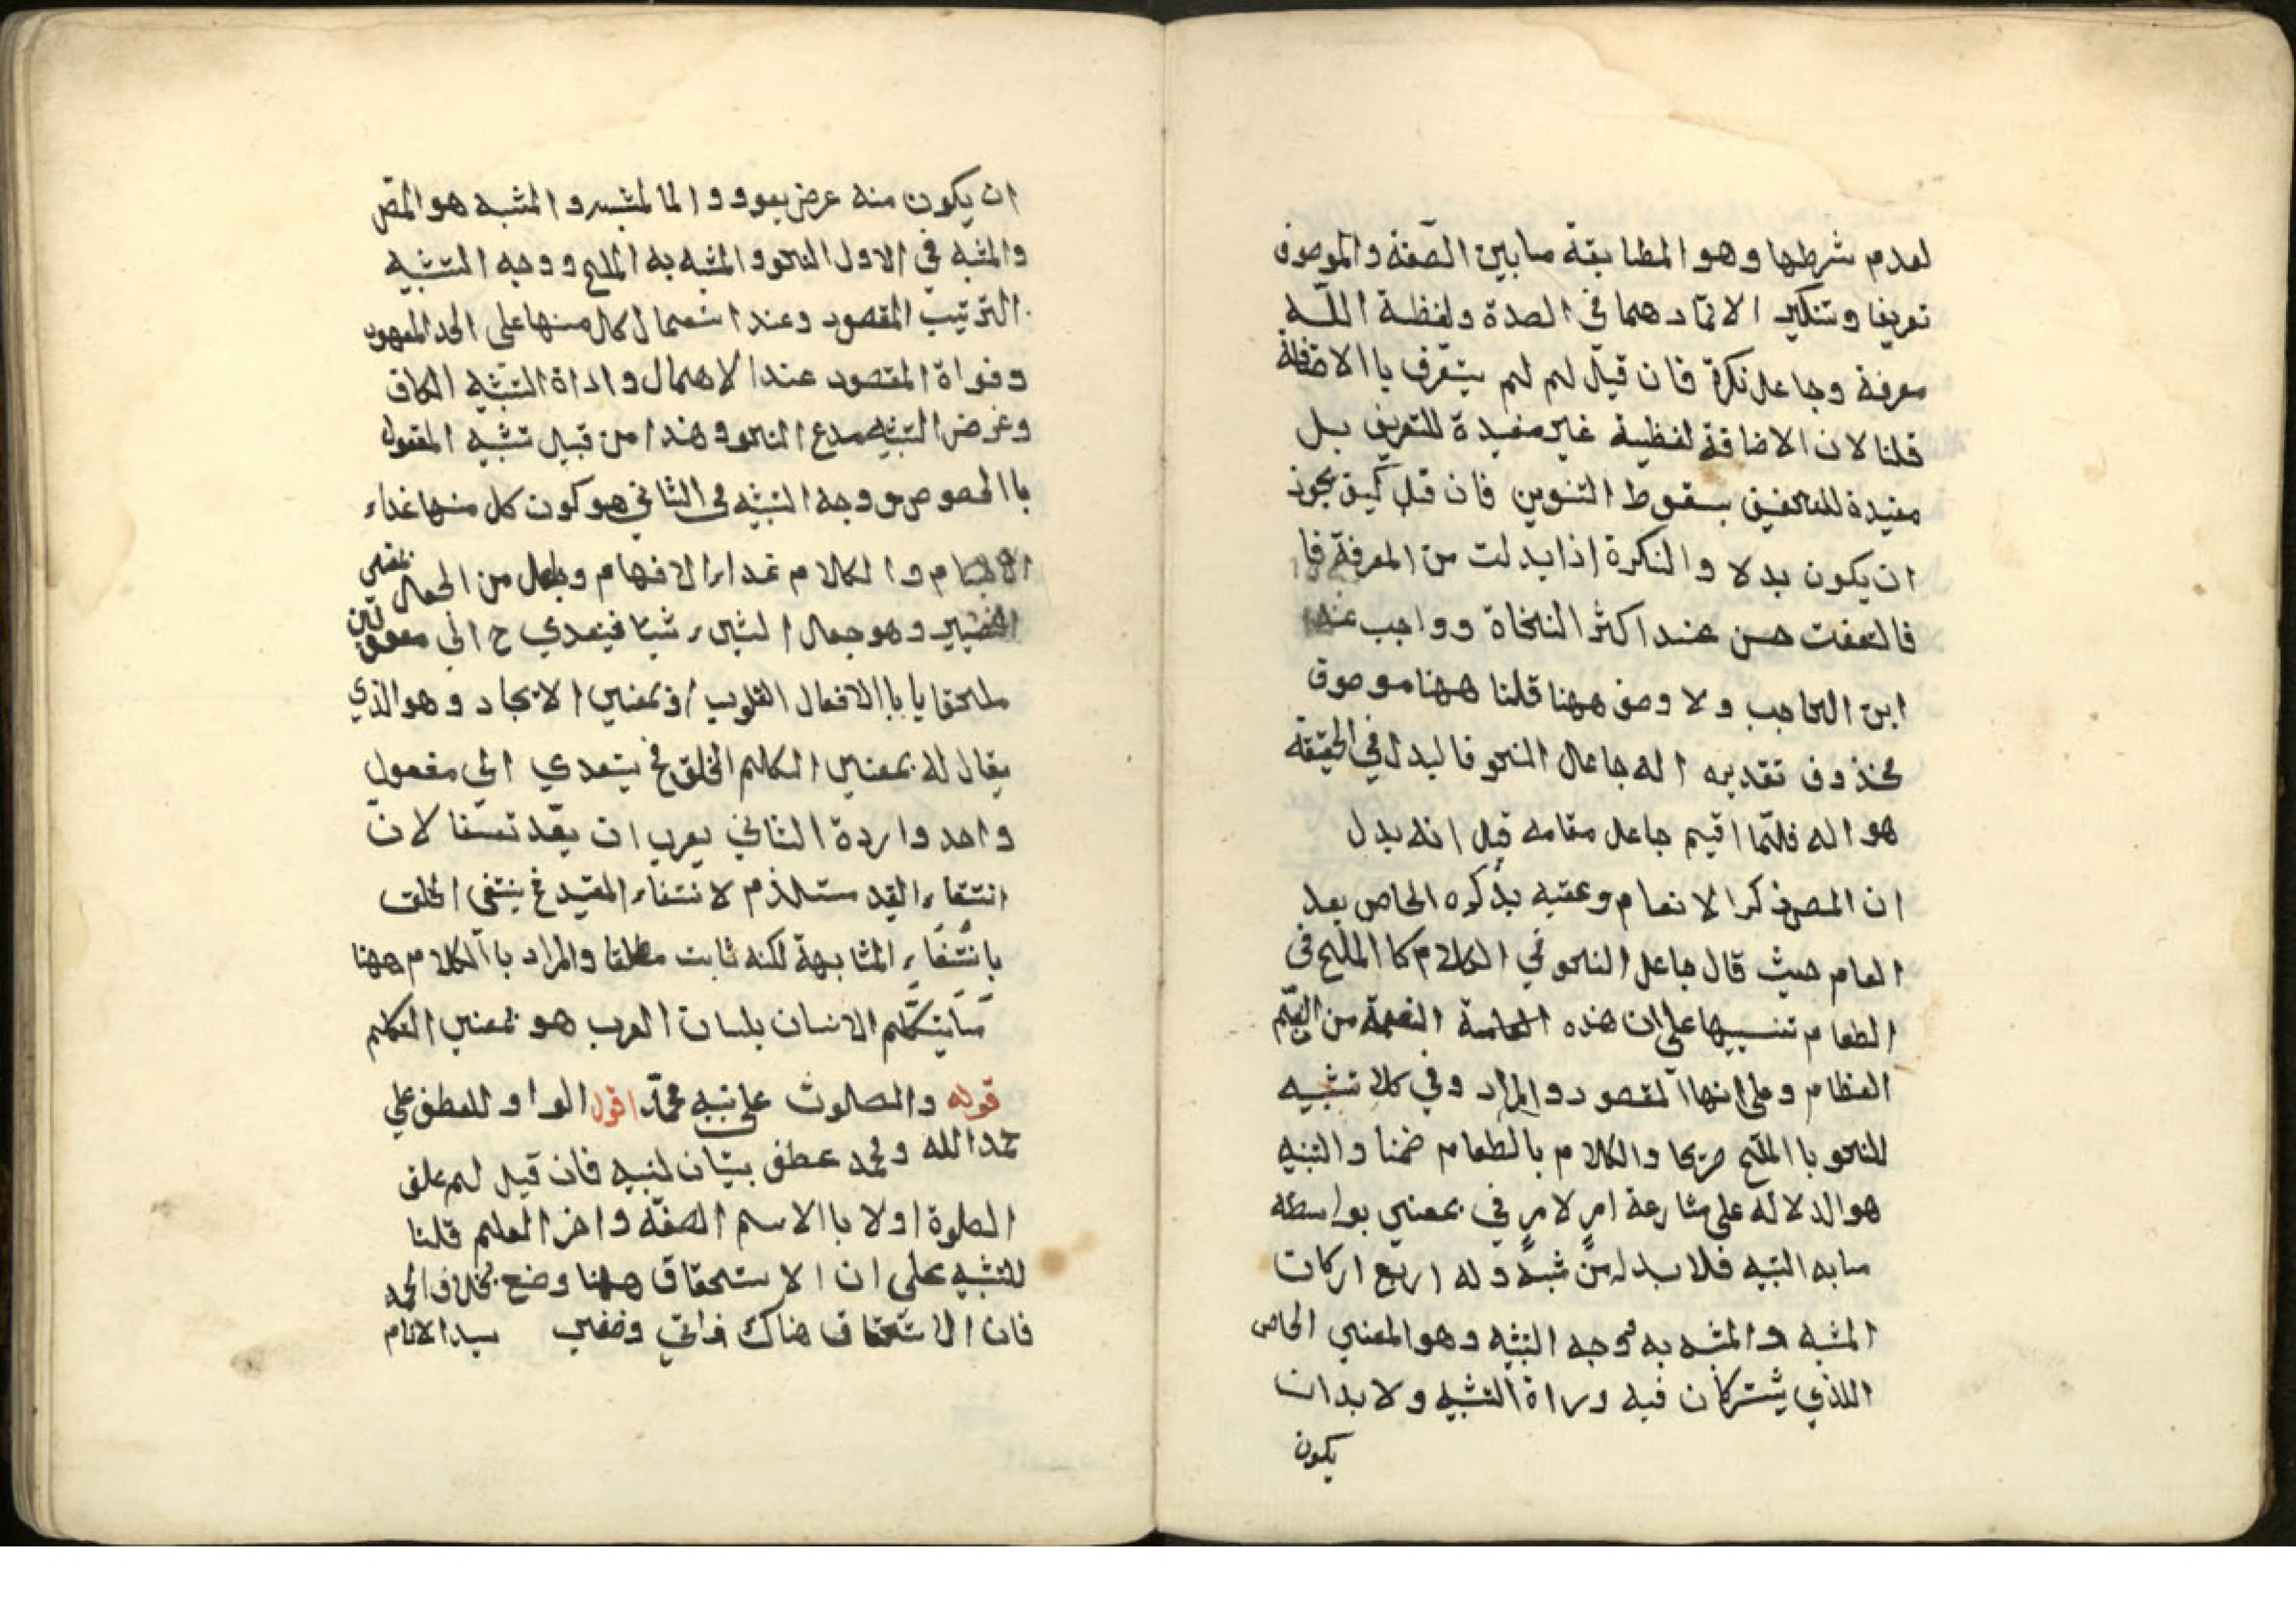 لعدم شرطها وهو المطابقة ما بين الصّفة والموصوف
تعريفا وتنكير الاتحادهما في الصدة ولفظة اللّه
معرفة وجاعل نكرة فان قيل لم لم يتعّرف باالاضافة
قلنا لان الاضافة لفظية غير مفيدة للتعريف بل
مفيدة للتخفيف بسقوط التنوين فان قيل كيف يجوز
ان يكون بدلا والنكرة اذا بدلت من المعرفة فا
فالنعت حسن عند اكثر النحاة وواجب عند
ابن الحاجب ولا وصف ههنا قلنا ههنا موصوف
محذوف تقديره اله جاعل النحو فالبدل في الحقيقة
هو اله فلمّا اقيم جاعل مقامه قيل انه بدل
ان المصنف ذكر الانعام وعقبه بذكره الخاص بعد
العام حيث قال جاعل النحو في الكلام كا الملح في
الطعام تنبيها على ان هذه الخاصة النعمة من النعم
العظام وعلى انها المقصود والمراد وفي كلا تشبيه
للنحو باالملح صريحا والكلام بالطعام ضمنا والتشبيه
هو الدلالة على مشارعة امر لامر في بمعنى بواسطة
ما به التشبيه فلا بد له من شبه وله اربع اركان
المشبه والمشبه به ووجه التشبيه وهو المعنى الخاص
اللذي يشتركان فيه وراة التشبيه ولا بد ان
يكون
ان يكون منه عرض يعود والما لمشبه والمشبه هو المقص
والمشبه في الاول النحو والمشبه به الملح ووجه التشبيه
الترتيب المقصود وعند استعمال كل منها على الحد المعهود
وفواة المقصود عند الاهمال واداة التشبيه الكاف
وغرض التشبيه مدع النحو وهذا من قبيل تشبيه المعقول
باالمحسوس ووجه التشبيه في الثاني هو كون كل منها غداء
الاجسام والكلام غداء الافهام وجعل من الجعل بمعنى
التصيير وهو جعل الشيء شيئا فيتعدي ح الى مفعولين
ملحقا يا باالافعال القلوب او بمعنى الايجاد وهو الذي
يقال له بمعنى الكلم الخلق فح يتعدي الى مفعول
واحد وارادة الثاني يعرب ان يعّد تعسّفا لانّ
انتفاء القيد ستلذم لانتفاء المقيد فح ينتفى الخلق
بانتفاء المشابهة لكنه ثابت مطلقا والمراد باالكلام ههنا
ما يتكلّم الانسان بلسان العرب هو بمعنى التكلم
قوله والصلوت على نبيه محمّد اقول الواو للعطف على
حمد الله ومحمد عطف بيان لنبيه فان قيل لم علق
الصلوة اولا باالاسم الصفّة واخر العلم قلنا
للتنبيه على ان الاستحقاق ههنا وضع بخلاف الحمد
فان الاستحقاق هناك ذاتي وضفى سيد الانام